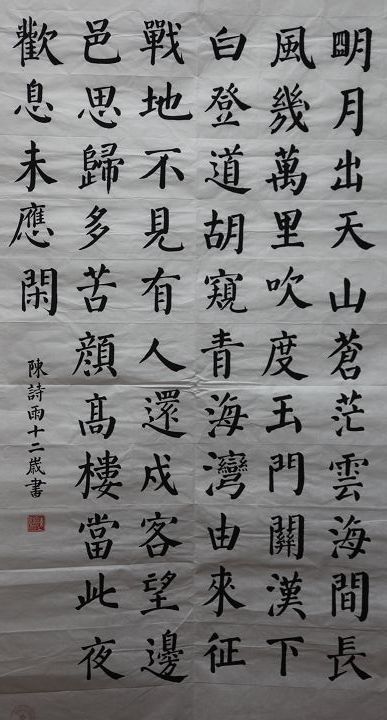 明月出天山蒼茫雲海間長
風幾萬里吹度玉門關漢下
白登道胡窺青海灣由來征
戰地不見有人還戍客望邊
邑思歸多苦顔髙樓當此夜
歡息未應閑
陳詩雨十二歲書